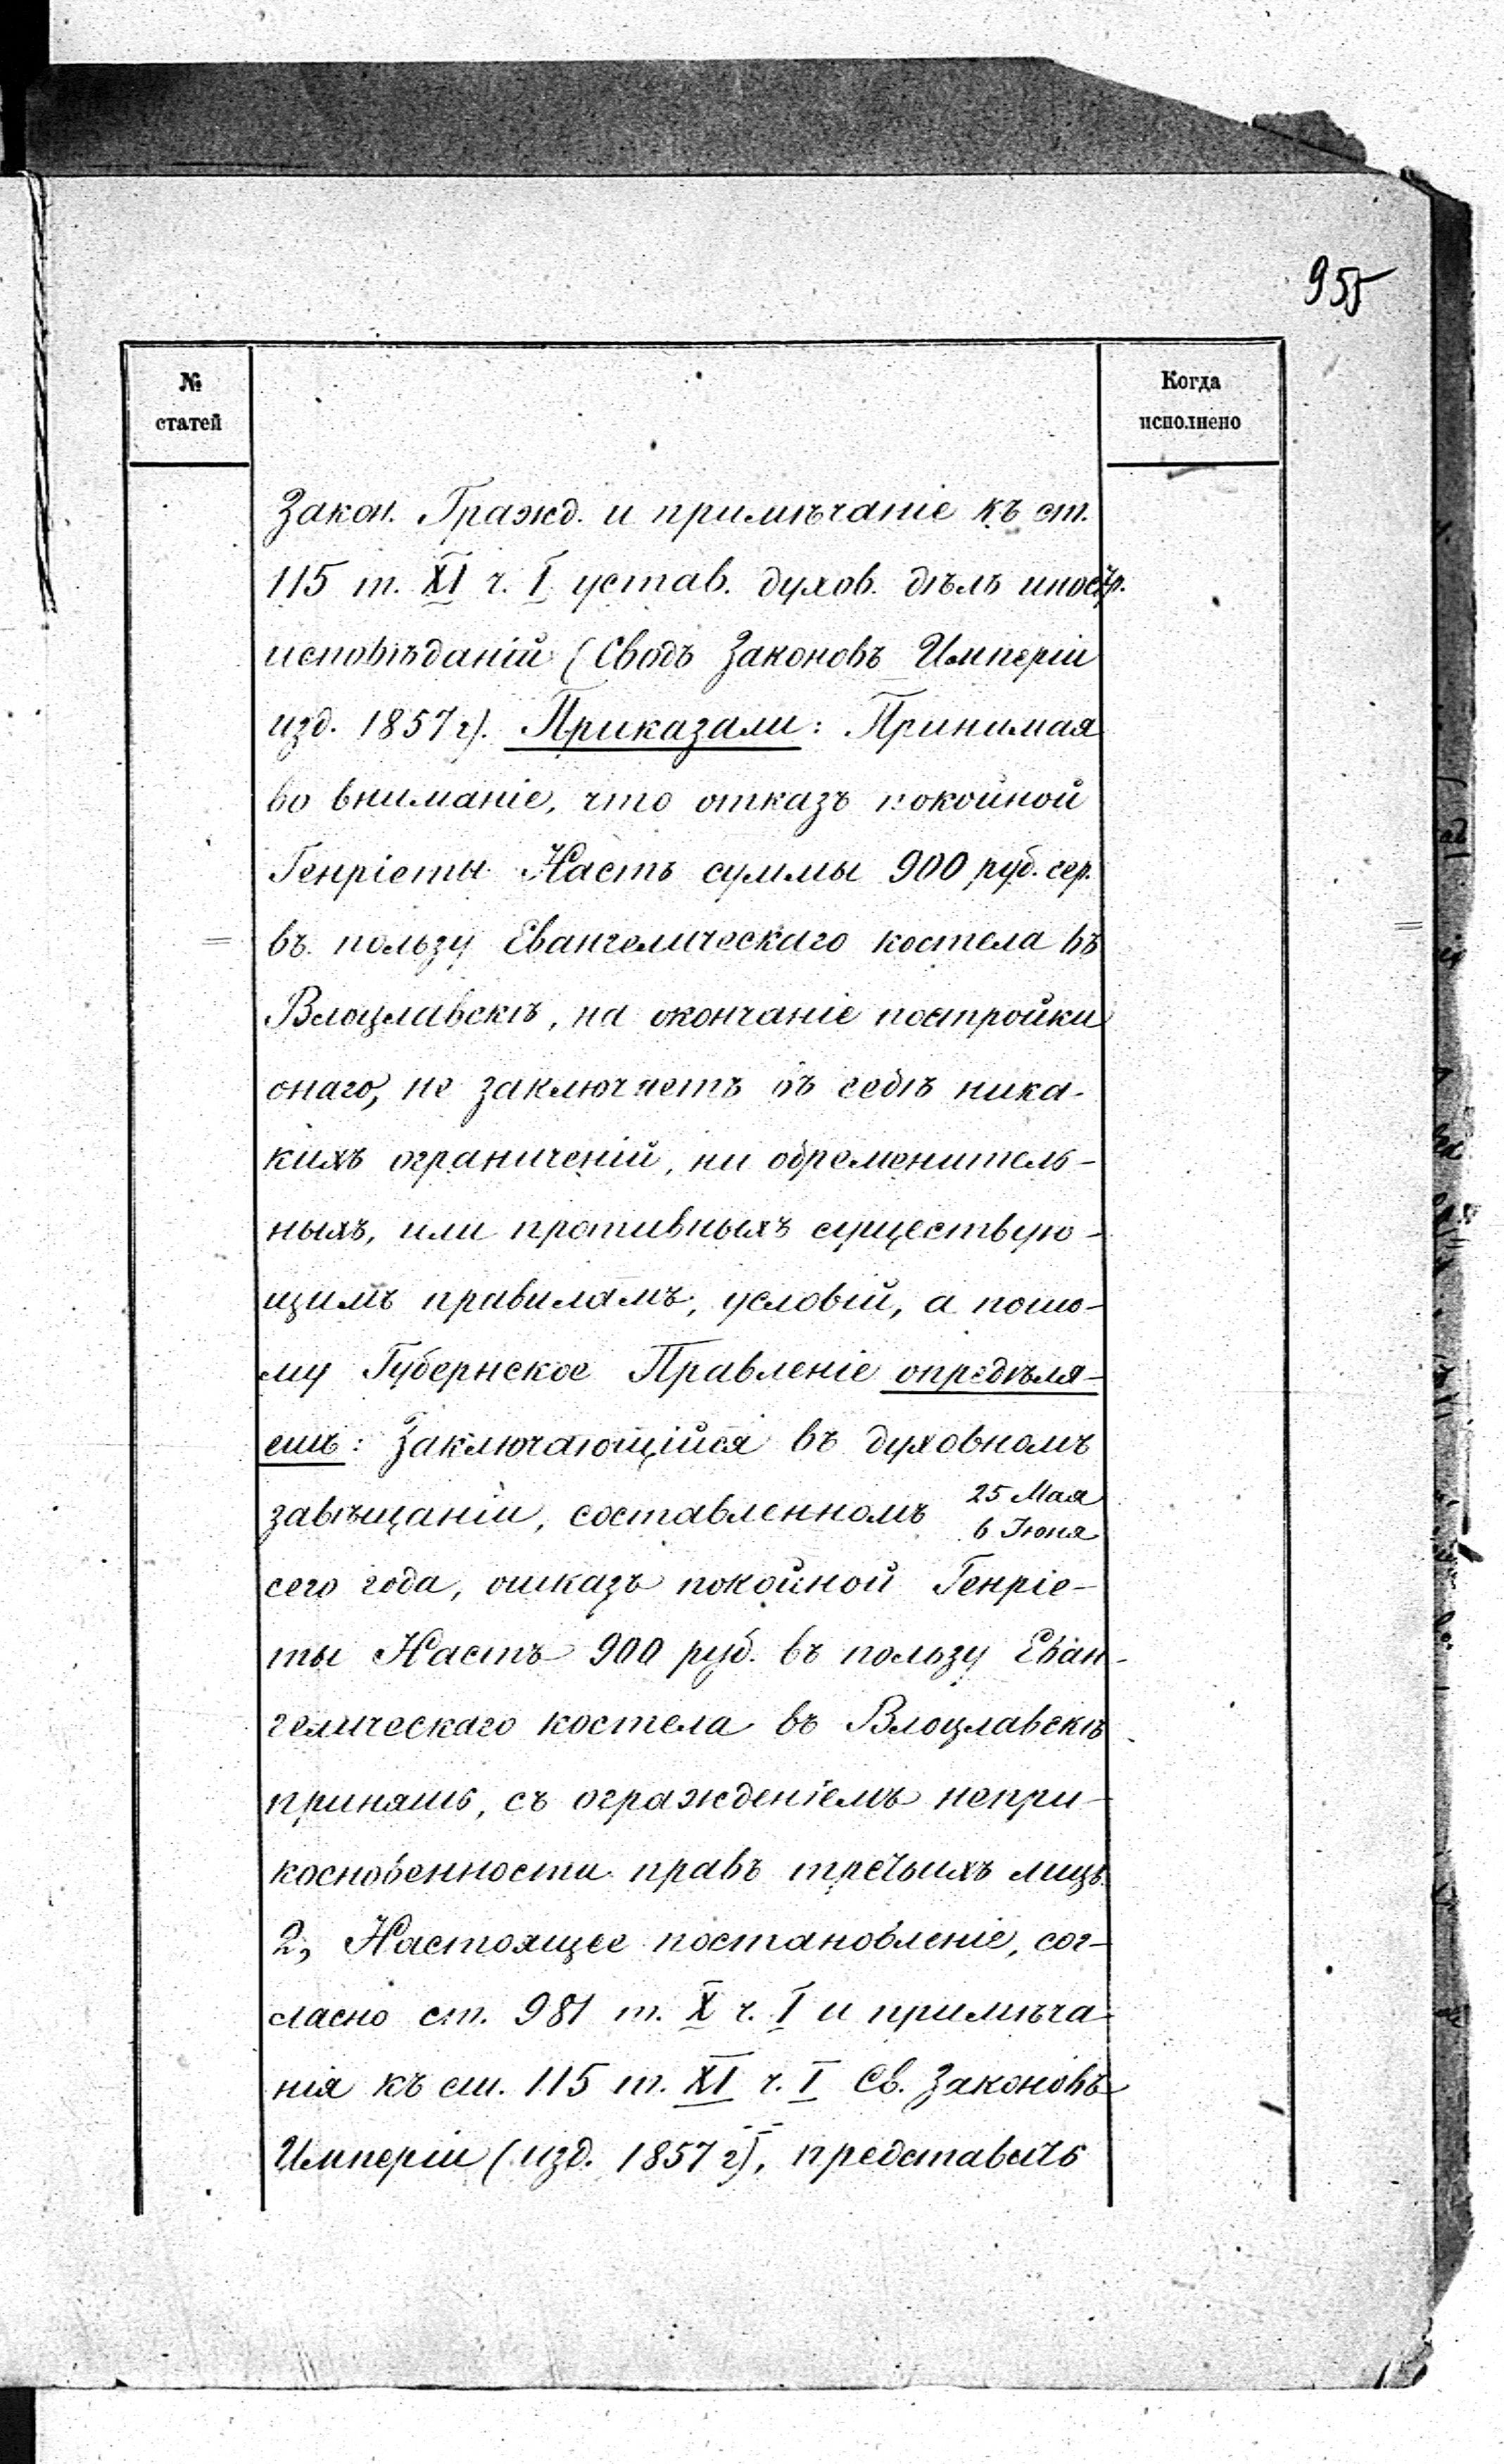 955
№
статей
Когда
исполнено
Закон. Гражд. и примѣчаніе къ ст.
115 т. XI ч. I устав. духов. дѣлъ иностр.
исповѣданій (Сводъ Законовъ Имперіи
изд. 1857 г). Приказали: Принимая
во вниманіе, что отказъ покойной
Генріеты Настъ суммы 900 руб. сер.
въ пользу Евангелическаго костела въ
Влоцлавскѣ, на окончаніе постройки
онаго, не заключаетъ въ себѣ ника-
кихъ ограниченій, ни обременитель-
ныхъ, или противныхъ существую-
щимъ правиламъ, условій, а пото-
му Губернское Правленіе опредѣля-
етъ: Заключающійся въ духовномъ
завѣщаніи, составленномъ 25 Мая
6 Іюня
сего года, отказъ покойной Генріе-
ты Настъ 900 руб. въ пользу Еван-
гелическаго костела въ Влоцлавскѣ
принять, съ огражденіемъ непри-
косновенности правъ третьихъ лицъ.
2, Настоящее постановленіе, сог-
ласно ст. 981 т. X ч. I и примѣча-
нія къ ст. 115 т. XI ч. I Св. Законовъ
Имперіи (изд. 1857 г), представить